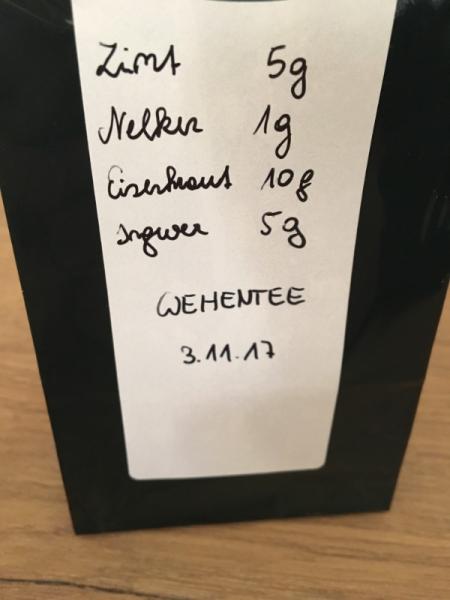 Zimt 5g
Nelken 1g
Eisenkraut 10g
Ingwer 5g
WEHENTEE
3.11.17